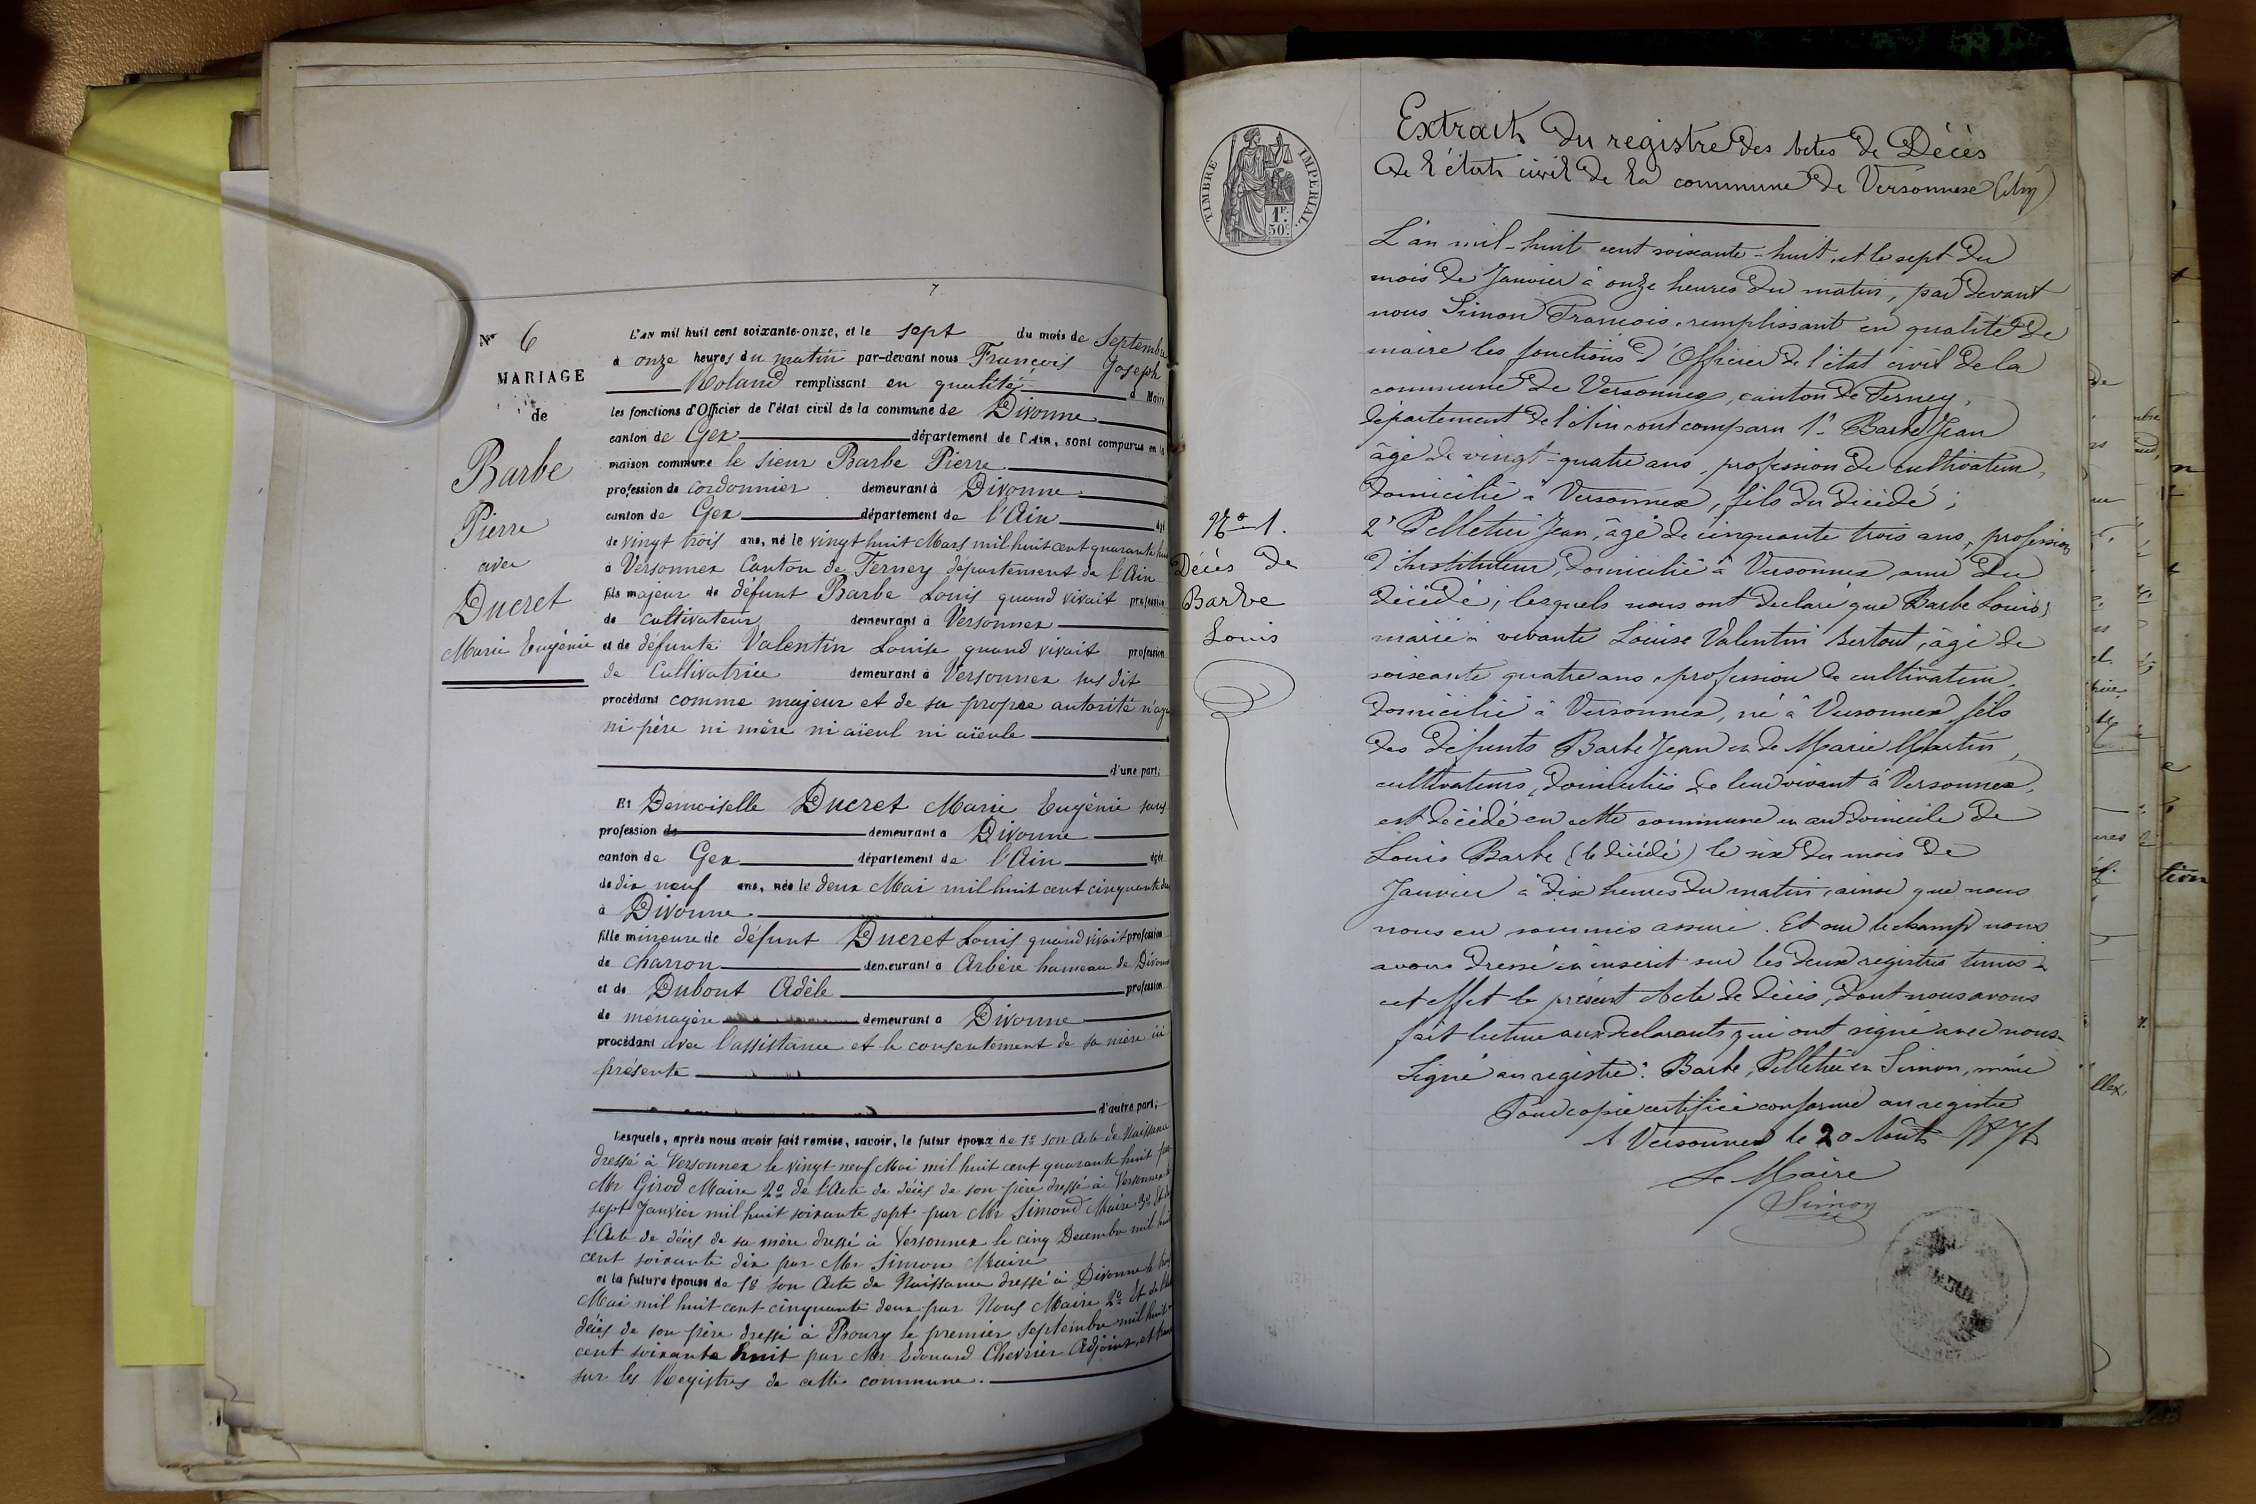 7
N° 6
MARIAGE
de
Barbe
Pierre
avec
Ducret
Marie Eugénie
L'an mil huit cent soixante-onze, et le sept du mois de Septembre
à onze heures du matin par-devant nous François Joseph
Roland remplissant en qualité d Maire
les fonctions d'Officier de l'état civil de la commune de Divonne
canton de Gex département de l'Ain, sont comparus en la
maison commune le sieur Barbe Pierre
profession de cordonnier demeurant à Divonne
canton de Gex département de l'Ain âgé
de vingt trois ans, né le vingt huit Mars mil huit cent quarante huit
à Versonnex Canton de Ferney département de l'Ain
fils majeur de défunt Barbe Louis quand vivait profession
de cultivateur demeurant à Versonnex
et de défunte Valentin Louise quand vivait profession
de Cultivatrice demeurant à Versonnex sus dit
procédant comme majeur et de sa propre autorité n'aya
ni père ni mère ni aïeul ni aïeule
d'une part;
Et Demoiselle Ducret Marie Eugénie sans
profession de demeurant à Divonne
canton de Gex département de l'Ain âgée
de dix neuf ans, née le deux Mai mil huit cent cinquante deu
à Divonne
fille mineure de défunt Ducret Louis quand vivait profession
de charron demeurant à Arbère hameau de Divonne
et de Dubout Adèle profession
de ménagère demeurant à Divonne
procédant avec l'assistance et le consentement de sa mère ici
présente
d'autre part;
Lesquels, après nous avoir fait remise, savoir, le futur époux de 1° son Acte de Naissance
dressé à Versonnex le vingt neuf Mai mil huit cent quarante huit par
Mr Girod Maire 2° de l'Acte de décès de son père dressé à Versonnex
sept Janvier mil huit soixante sept par Mr Simond Maire 3° Et de
l'Acte de décès de sa mère dressé à Versonnex le cinq Décembre mil huit
cent soixante dix par Mr Simon Maire
et la future épouse de 1° son Acte de Naissance dressé à Divonne le trois
Mai mil huit cent cinquante deux par Nous Maire 2° Et de l'Acte
décès de son père dressé à Bourg le premier Septembre mil huit
cent soixante huit par Mr Edouard Chevrier Adjoint, et
sur les Registres de cette commune.
TIMBRE IMPERIAL.
1F.
50c.
Extrait du registre des Actes de Décès
de l'état civil de la commune de Versonnex (Ain)
N° 1.
Décès de
Barbe
Louis
L'an mil-huit cent soixante-huit, et le sept du
mois de Janvier à onze heures du matin, par devant
nous Simon François, remplissant en qualité de
maire les fonctions d'Officier de l'état civil de la
commune de Versonnex, canton de Ferney,
département de l'Ain ont comparu 1° Barbe Jean
âgé de vingt-quatre ans, profession de cultivateur,
domicilié à Versonnex, fils du décédé;
2° Pelletier Jean, âgé de cinquante trois ans, profession
d'Instituteur, domicilié à Versonnex, ami du
décédé, lesquels nous ont déclaré que Barbe Louis,
marié à vivante Louise Valentin Bertout, âgé de
soixante quatre ans, profession de cultivateur,
domicilié à Versonnex, né à Versonnex, fils
des défunts Barbe Jean et de Marie Martin,
cultivateurs, domiciliés de leur vivant à Versonnex,
est décédé en cette commune en au domicile de
Louis Barbe (le décédé) le six du mois de
Janvier à dix heures du matin, ainsi que nous
nous en sommes assuré. Et sur le champ nous
avons dressé et inscrit sur les deux registres tenus à
cet effet le présent Acte de décès, dont nous avons
fait lecture aux déclarants qui ont signé avec nous.
Signé au registre: Barbe, Pelletier et Simon, maire
Pour copie certifiée conforme au registre
A Versonnex le 20 Août 1871
Le Maire
Simon